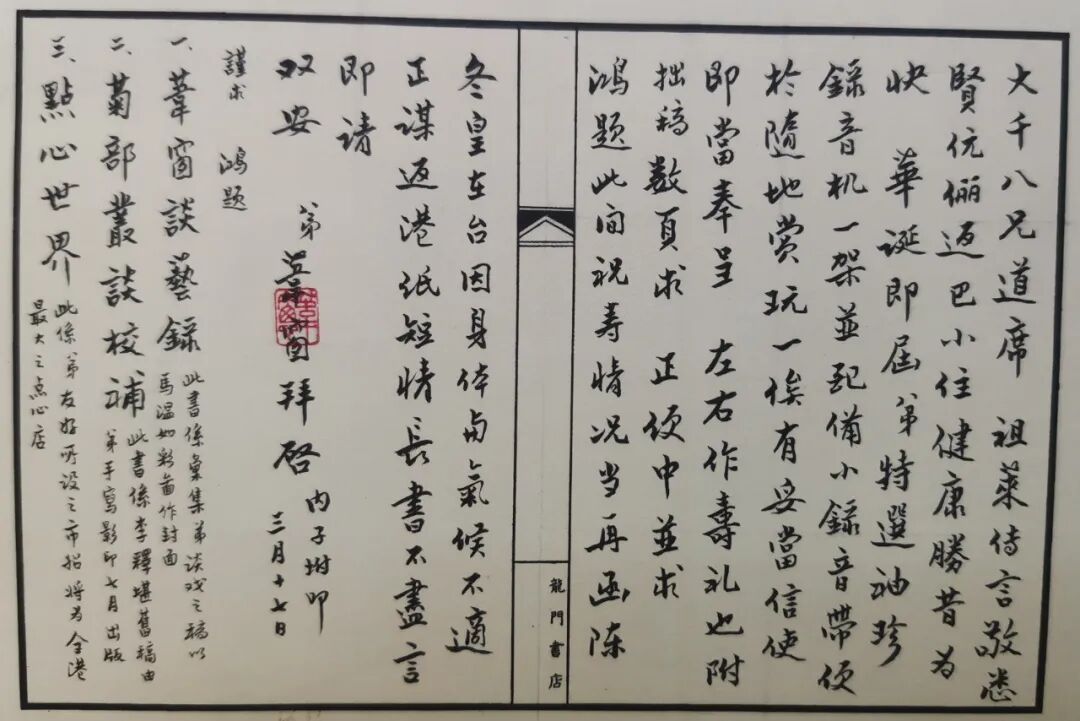 大千八兄道席　祖萊侍言敬悉
賢伉儷返巴小住健康勝昔为
快　華诞即屆弟特選袖珍
錄音机一架並配備小錄音帶便
於隨地赏玩一俟有妥當信使
即當奉呈　左右作壽礼也附
拙稿数頁求　正便中並求
鴻题此间祝寿情况当再函陈
龍門書店
冬皇在台因身体与氣候不適
正谋返港纸短情長書不盡言
即请
双安
弟葦窗拜啓　内子坿叩
三月十七日
謹求　鴻题
一、葦窗談藝錄　此書係彙集弟談戏之稿以
馬温如彩畫作封面
二、菊部叢談校補　此書係李釋堪舊稿由
弟手寫影印七月出版
三、點心世界　此係弟友好所设之市招将为全港
最大之点心店